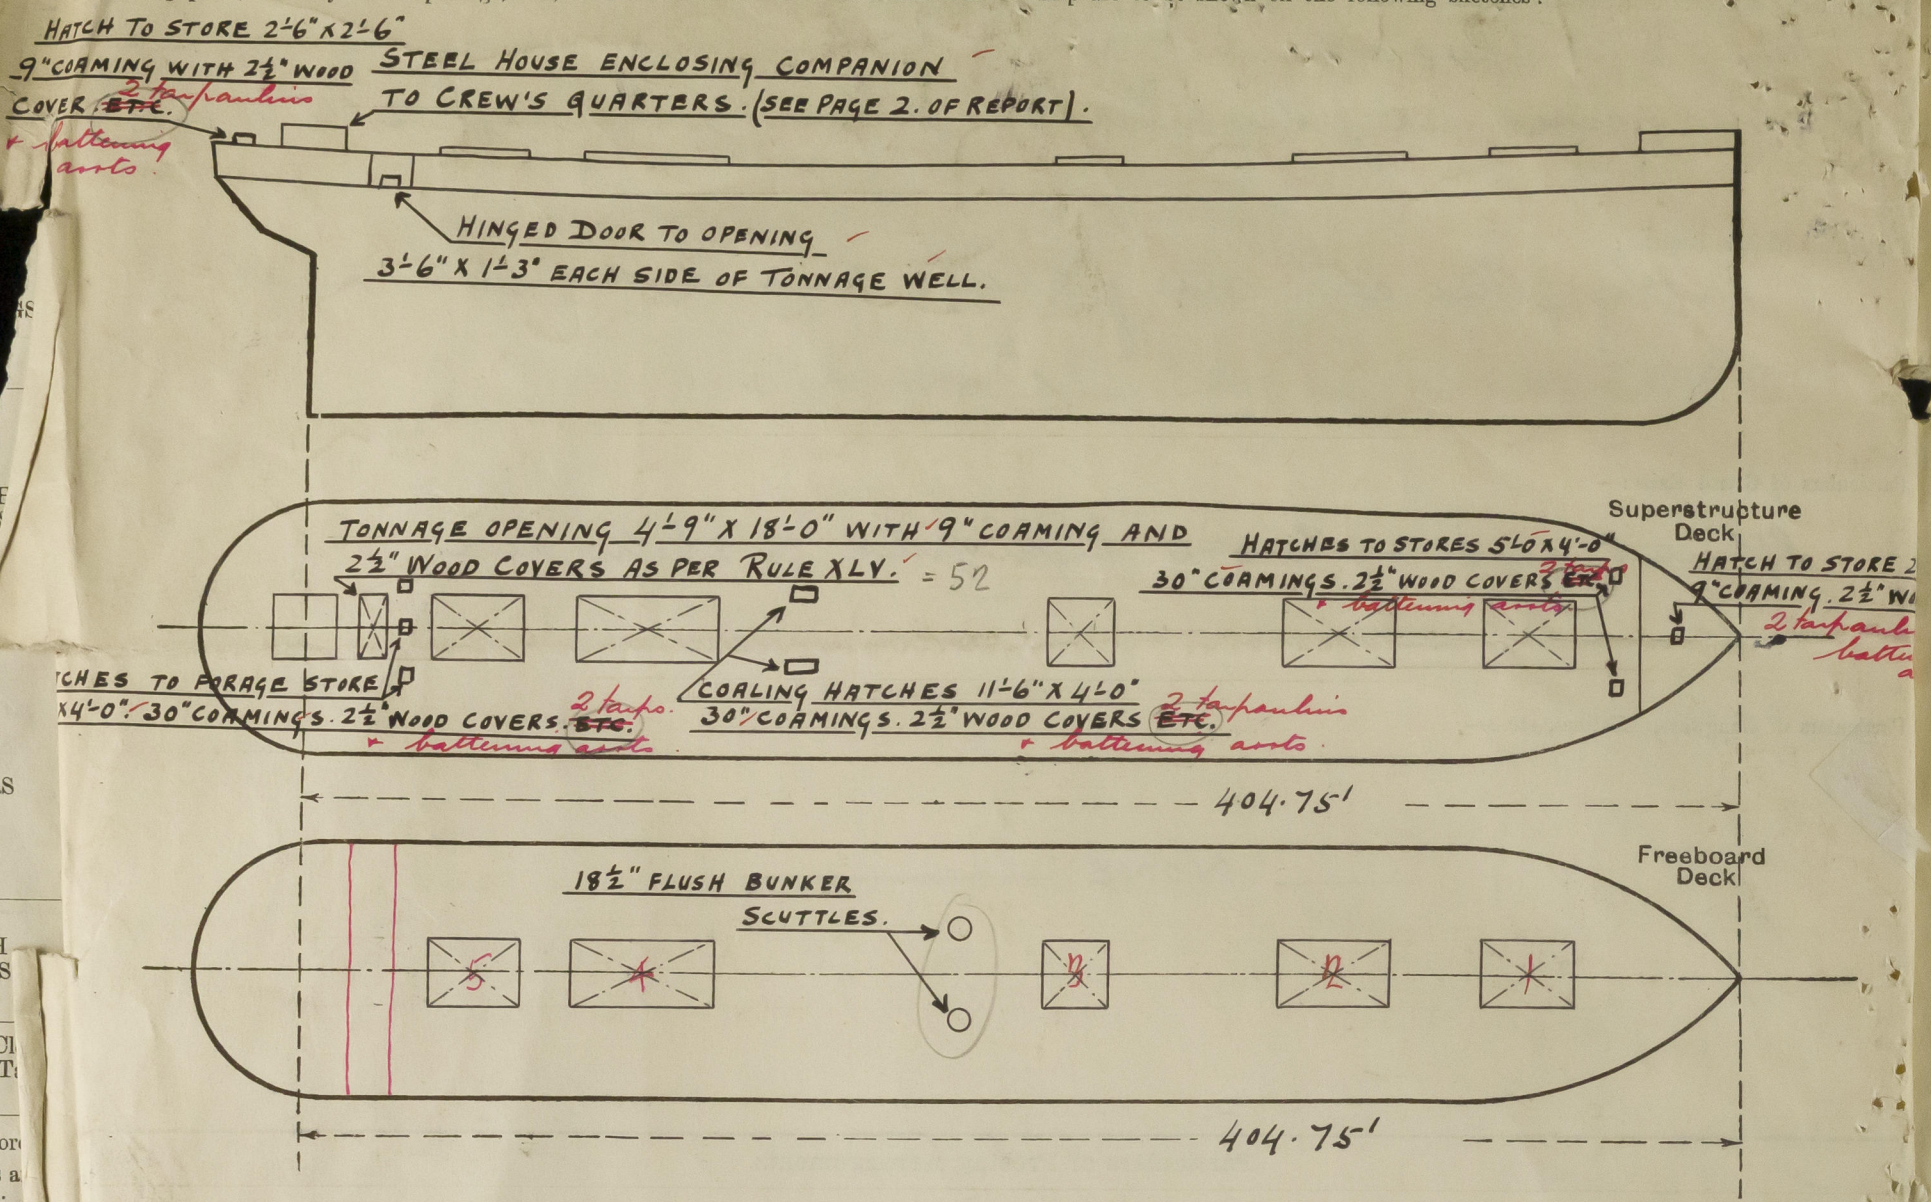 HATCH TO STORE 2'-6" X 2'-6"
9" COAMING WITH 2½" WOOD
COVER ETC. 2 tarpaulins
+ battening
arrts.
STEEL HOUSE ENCLOSING COMPANION
TO CREW'S QUARTERS. (SEE PAGE 2. OF REPORT).
HINGED DOOR TO OPENING
3'-6" X 1'-3" EACH SIDE OF TONNAGE WELL.
Superstructure
Deck
TONNAGE OPENING 4'-9" X 18'-0" WITH 9" COAMING AND
2½" WOOD COVERS AS PER RULE XLV. = 52
HATCHES TO STORES 5'-0 X 4'-0"
30" COAMINGS. 2½" WOOD COVERS ETC. 2 tarps
+ battening arrts
HATCH TO STORE 2
9" COAMING. 2½" WO
2 tarpauli
batte
a
TCHES TO FORAGE STORE
X 4'-0". 30" COAMINGS. 2½" WOOD COVERS. ETC. 2 tarps.
+ battening arrts
COALING HATCHES 11'-6" X 4'-0"
30" COAMINGS. 2½" WOOD COVERS ETC. 2 tarpaulins
+ battening arrts.
404.75'
Freeboard
Deck
18½" FLUSH BUNKER
SCUTTLES.
5 4 3 2 1
404.75'